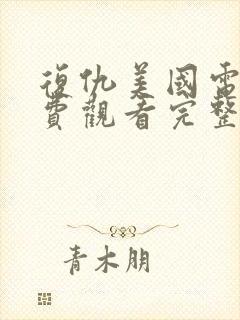 復仇美國電
費觀看完整
青木朋